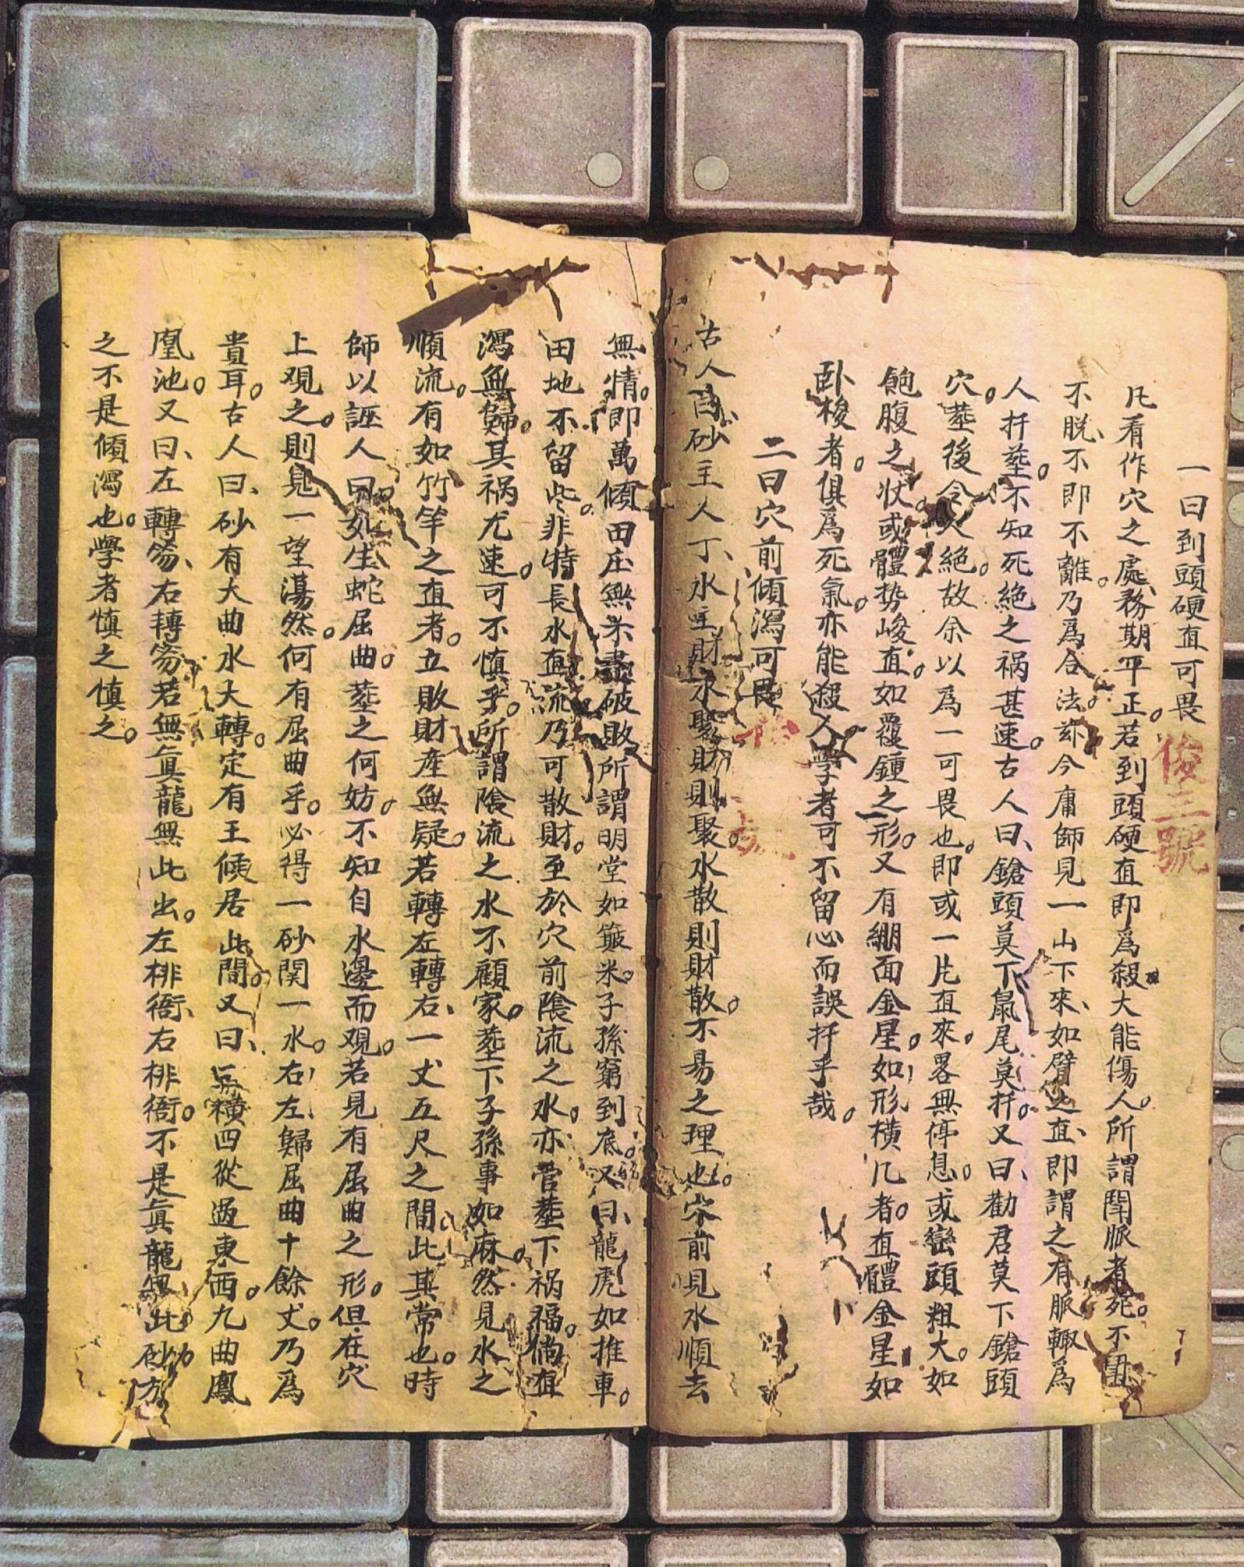 一曰到頭硬直可畏
俊三號
凡看作穴之處、務期平正。若到頭硬直即為殺大能傷人。所謂鬪脈者死。不鬪
不脱、不即不離。乃為合法。今庸師見一山下來、如臂之直、即謂之有脈輙為
人扦塟。不知死絶之禍甚速。古人曰、鎗頭莫下、鼠尾莫扦。又曰、勸君莫下鎗頭
穴。塟後令人絶。故余以為一可畏也。即或一片直來。畧無停息。或巒頭粗大。如
飽腹之状、或體势峻直。如覆鍾之形。又有綳面金星。如形横几者。直體金星如
卧梭者。俱為死氣。亦能殺人。學者可不留心而誤扦乎哉。
二曰穴前傾瀉可畏
古人曰、砂主人丁、水主財。水聚財則聚、水散則財散。不易之理也。穴前見水順去
無情。即萬傾田庄無米。盡破敗。所謂明堂如簸米。子孫窮到底。又曰、龍虎如推車。
田地不留些。非特長水直流乃可散財。至於穴前陰流之水。亦管塟下禍福。倘直
瀉無歸。其禍尤速。可不慎乎。所謂陰流之水不顧家。塟下子孫事如麻。然見水之
順流。有如竹竿之直者。立敗財産無疑。若轉左轉右、一丈五尺之間此其常也。時
師以誣人曰、如生蛇屈曲。塟之何妨。不知自水邊而观。若見有屈曲之形。但在穴
上观之。則見一望湯然。何有屈曲乎。必得一砂関一水。右左歸屈曲十餘丈。乃為
貴耳。古人曰、砂有大曲水大轉。定有王侯居此間。又曰、橫四從過東西九曲鳳
凰池。又曰、左轉笏、右轉笏。若無真龍無此出。左排衙。右排衙。不是真龍無此砂。方
之不是傾瀉也。學者慎之慎之。